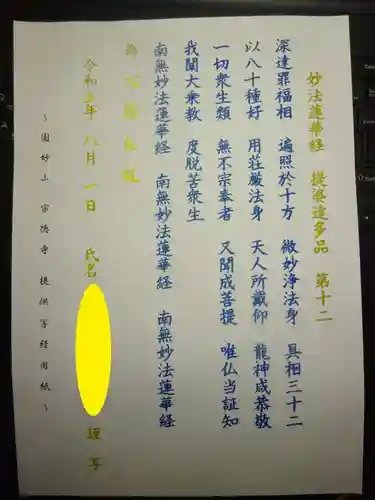 妙法蓮華経 提婆達多品 第十二
深達罪福相 遍照於十方 微妙浄法身 具相三十二
以八十種好 用荘厳法身 天人所戴仰 龍神咸恭敬
一切衆生類 無不宗奉者 又聞成菩提 唯仏当証知
我闡大乗教 度脱苦衆生
南無妙法蓮華経 南無妙法蓮華経 南無妙法蓮華経
為
令和 年八月一日 氏名 謹写
～圓妙山 宗徳寺 提供写経用紙～